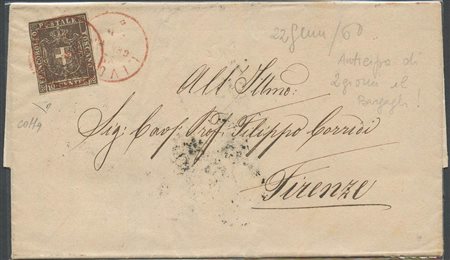 FRANCOBOLLO POSTALE TOSCANO
LIVO
22 Genn/60
Anticipo di
2 giorni il
Bargagli.
Coll 9
All' Illmo:
Sig: Cav: Prof. Filippo Corridi
Firenze